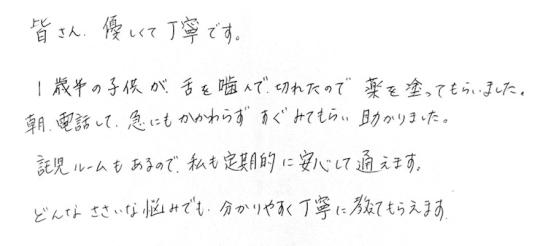 皆さん、優しくて丁寧です。
1歳半の子供が、舌を噛んで、切れたので 薬を塗ってもらいました。
朝、電話して、急にもかかわらず すぐみてもらい 助かりました。
託児ルームもあるので、私も定期的に安心して通えます。
どんなささいな悩みでも、分かりやすく丁寧に教えてもらえます。